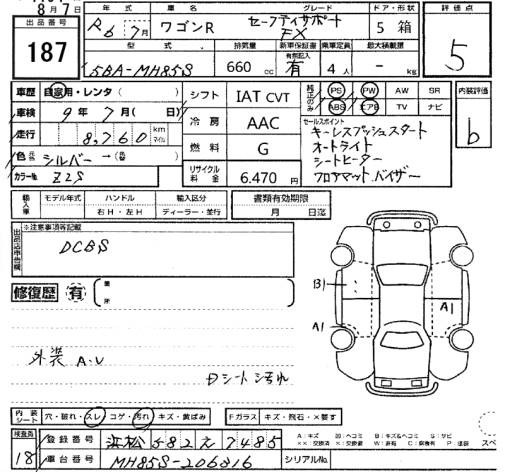 8月7日
年式 車名 グレード ドア・形状 評価点
出品番号
R6年7月 ワゴンR セーフティサポート FX 5 箱
187
型式 排気量 新車保証書 乗車定員 最大積載量
有無記入
5BA-MH85S 660cc 有 4人 - kg 5
車歴 自家用・レンタ( )
車検 9年7月( 日)
走行 8,760 km マイル
色 シルバー→(色番)
カラーNo. Z2S
シフト IAT CVT
冷房 AAC
燃料 G
リサイクル料金 6.470円
純正のみ PS PW AW SR
ABS エアB TV ナビ
内装評価
b
セールスポイント
キーレスプッシュスタート
オートライト
シートヒーター
フロアマット.バイザー
輸入車 モデル年式 ハンドル 輸入区分
右H・左H ディーラー・並行
書類有効期限
月 日迄
※注意事項等記載
出品店申告欄
DCBS
修復歴 有 箇所
B1
A1
A1
外装 A.U
Dシート汚れ
内装シート 穴・破れ・スレ コゲ・汚れ キズ・黄ばみ
Fガラス キズ・飛石・×要す
検査員
18
登録番号 浜松 582 え 7485
車台番号 MH85S-206816
シリアルNo.